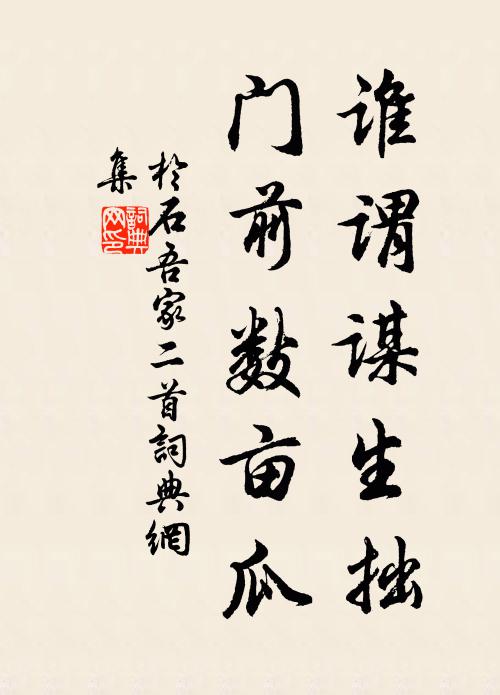 谁谓谋生拙
门前数亩瓜
於石吾家二首詞典網
集
詞典
网印